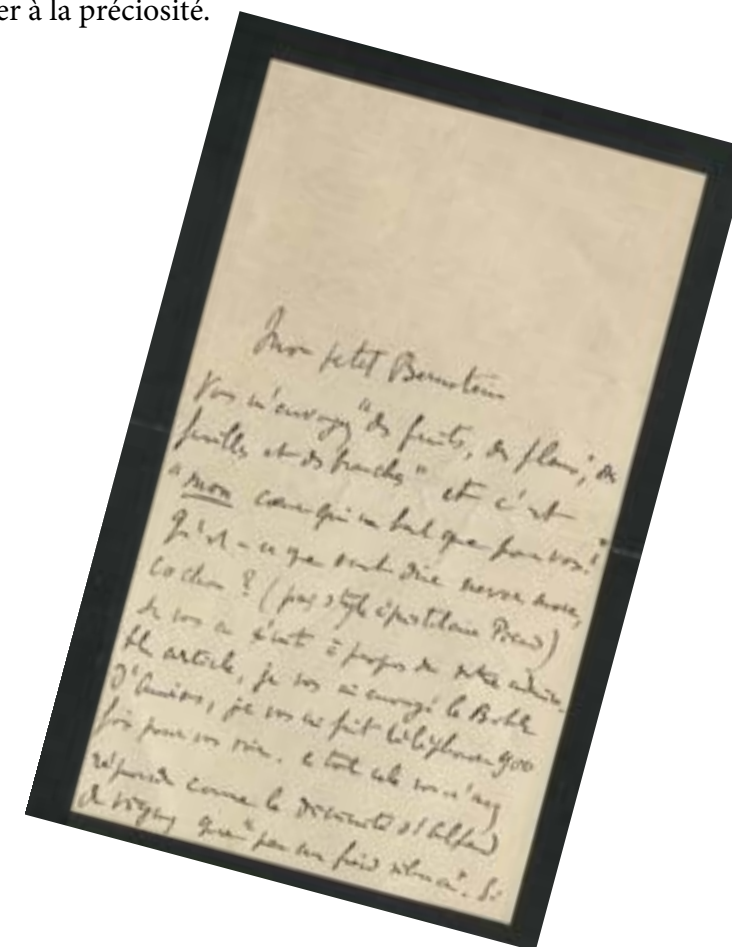 er à la préciosité.
Mon petit Bernstein
Vous m'envoyez "des fruits, des fleurs, des
feuilles et des branches" et c'est
"mon coeur qui ne bat que pour vous!"
Qu'est-ce que veut dire
cochon? (pas style épistolaire Proust)
je vous ai écrit à propos de votre admira-
ble article, je vous ai envoyé la Bible
d'Amiens, je vous ai fait téléphoner 900
fois pour vos
répondu comme la divinité d'Alfred
de Vigny que "par un froid silence". Si